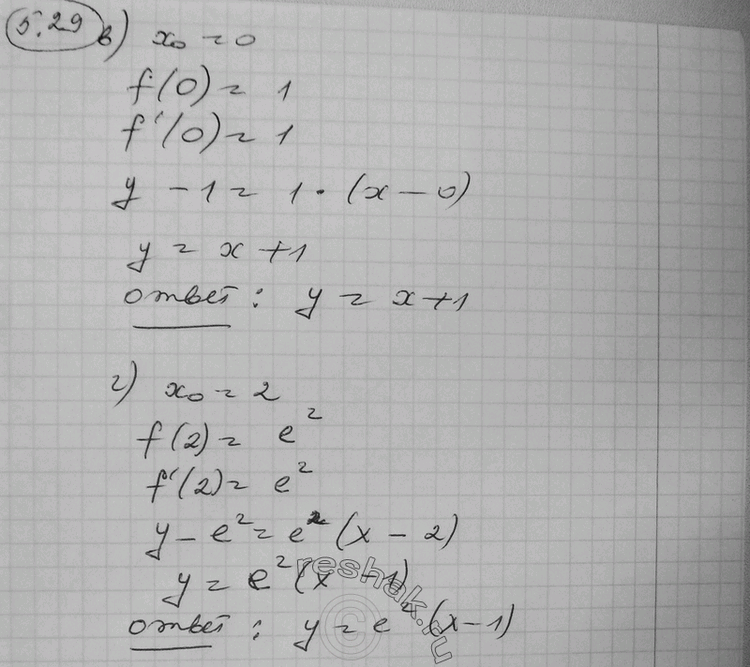 5.29 в) x₀ = 0
f(0) = 1
f'(0) = 1
y - 1 = 1 · (x - 0)
y = x + 1
ответ: y = x + 1
г) x₀ = 2
f(2) = e²
f'(2) = e²
y - e² = e² (x - 2)
y = e² (x - 1)
ответ: y = e² (x - 1)
reshak.ru